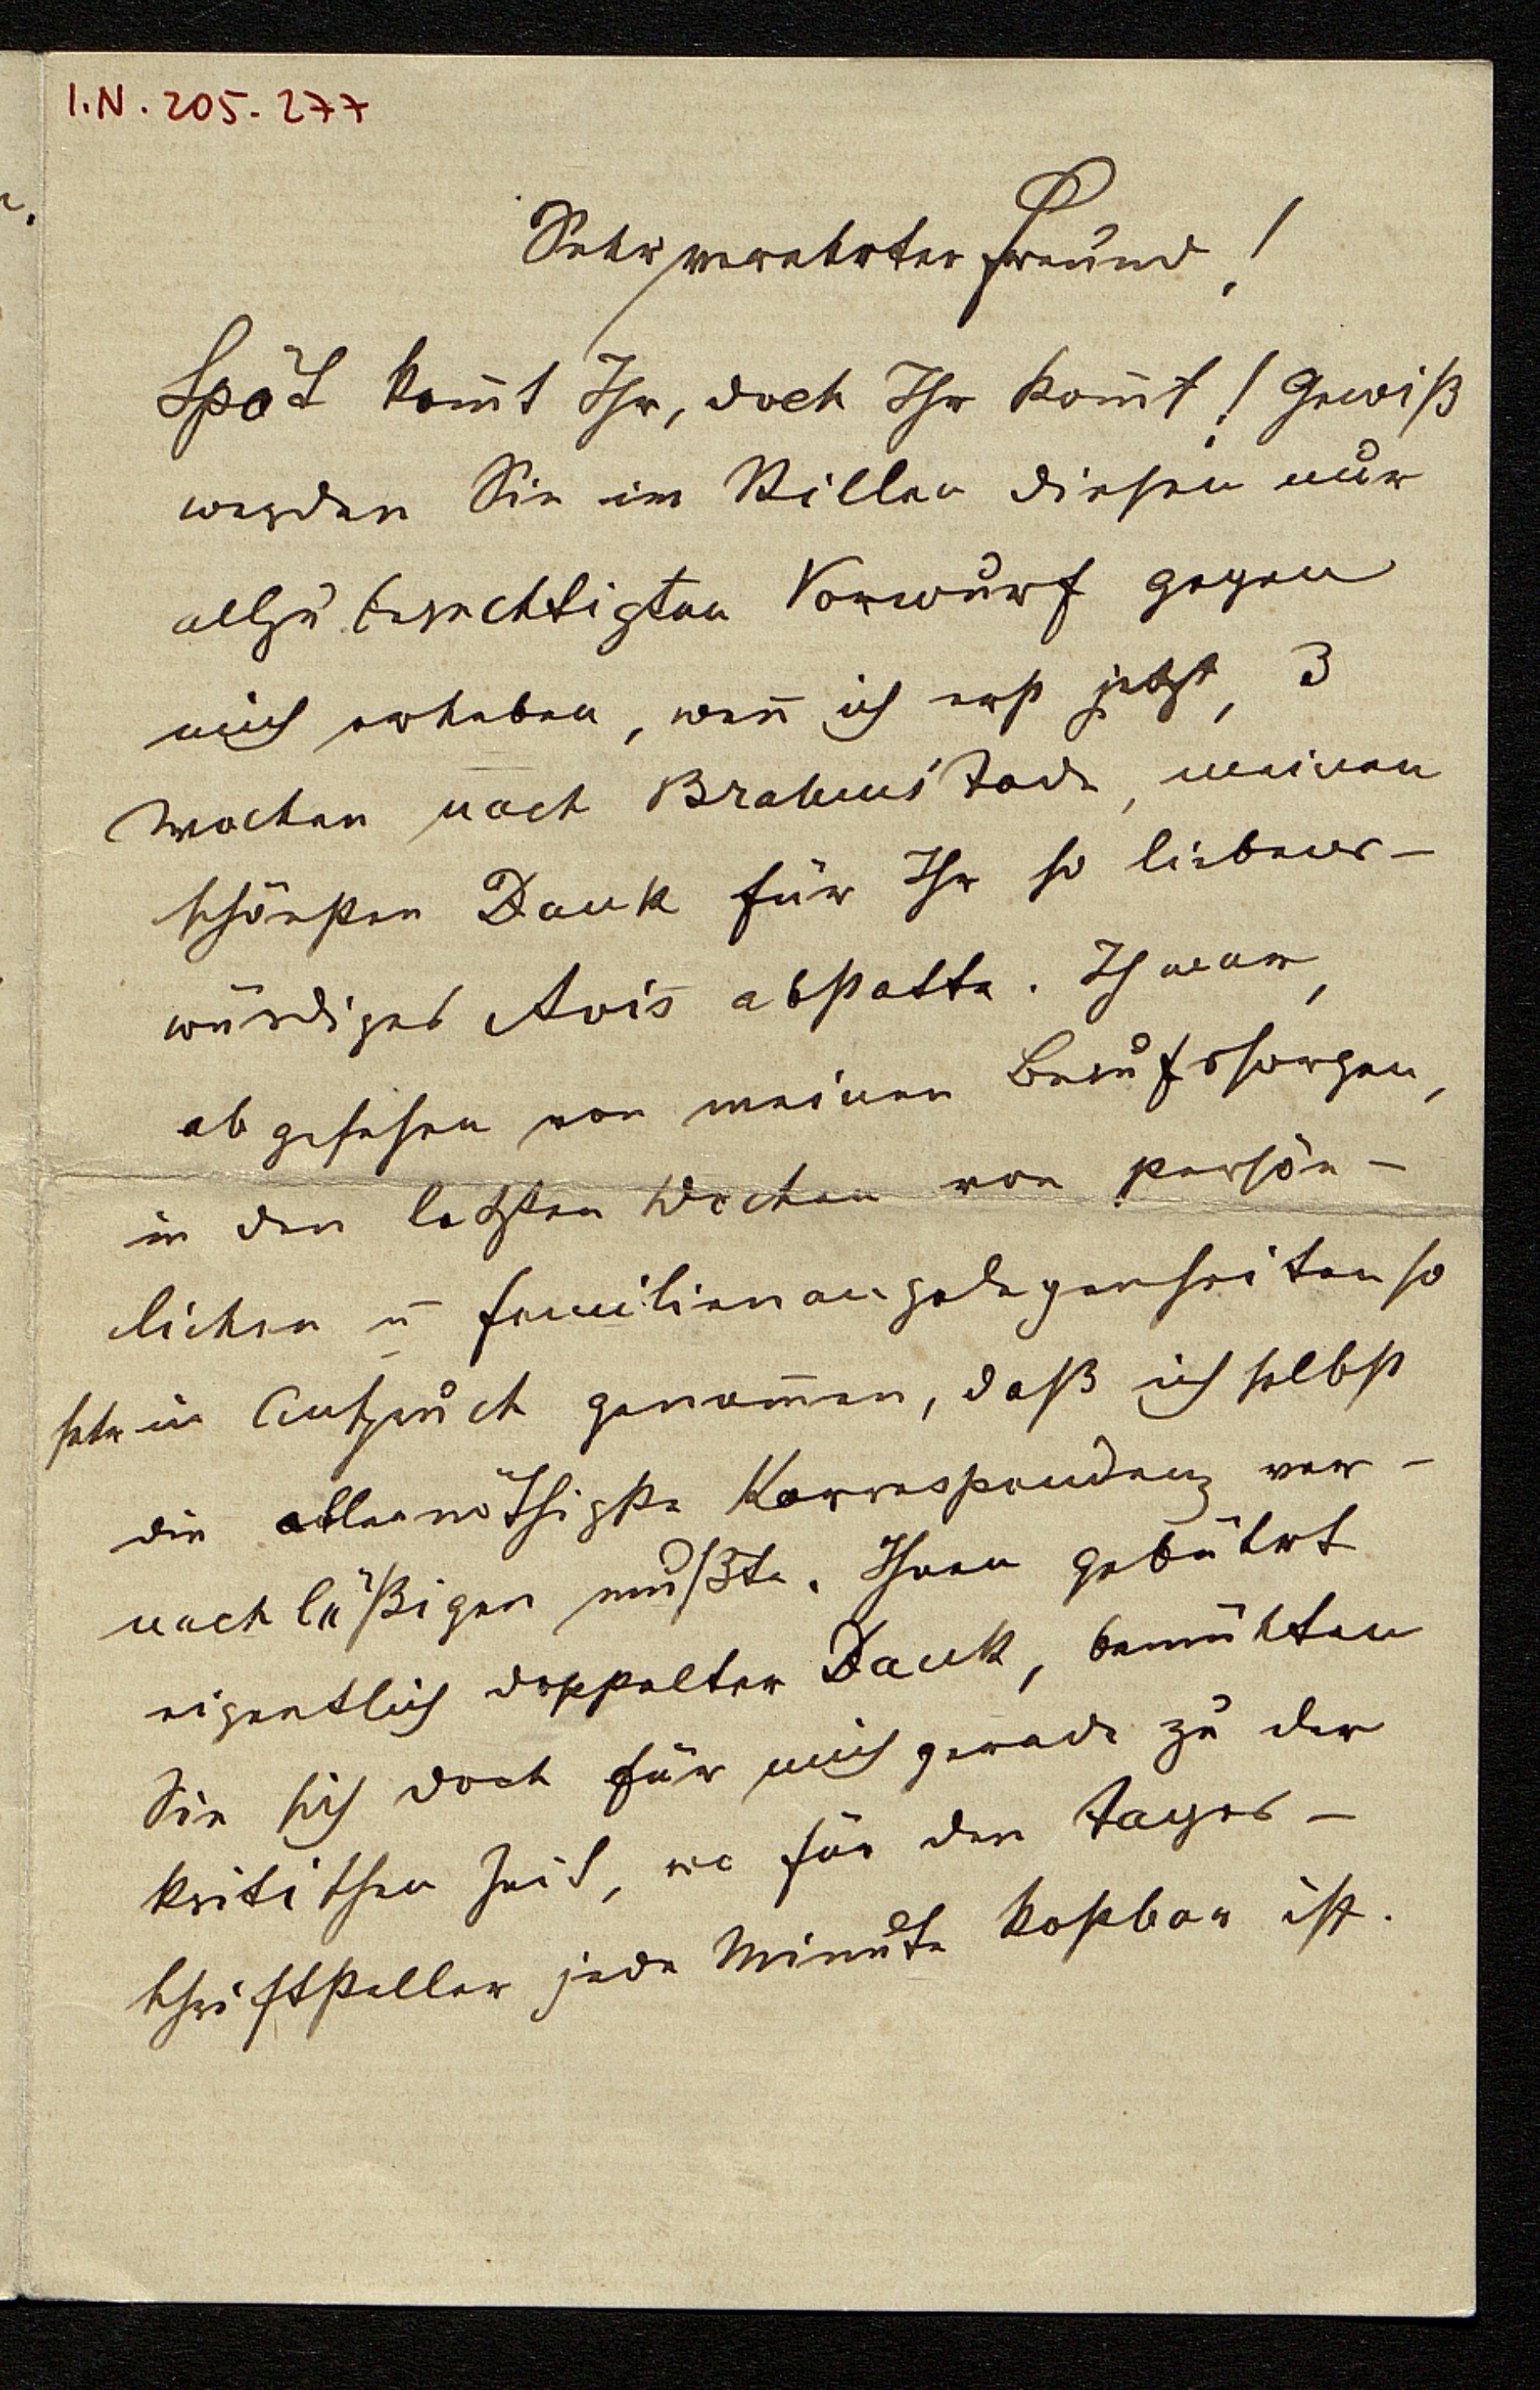 I.N. 205.277
Sehr verehrter Freund!
Spät kom̅t Ihr, doch Ihr kom̅t! Gewiß
werden Sie im Stillen diesen nur
allzu berechtigten Vorwurf gegen
mich erheben, wen̅ ich erst jetzt, 3
Wochen nach Brahms' Tode, meinen
schönsten Dank für Ihr so liebens-
würdiges Avis abstatte. Ich war,
abgesehen von meinen Berufssorgen,
in den letzten Wochen von persön-
lichen u̅ Familienangelegenheiten so
sehr in Anspruch genom̅en, daß ich selbst
die allernöthigste Korrespondenz ver-
nachläßigen mußte. Ihnen gebührt
eigentlich doppelter Dank, bemühten
Sie sich doch für mich gerade zu der
kritischen Zeit, wo für den Tages-
schriftsteller jede Minute kostbar ist.